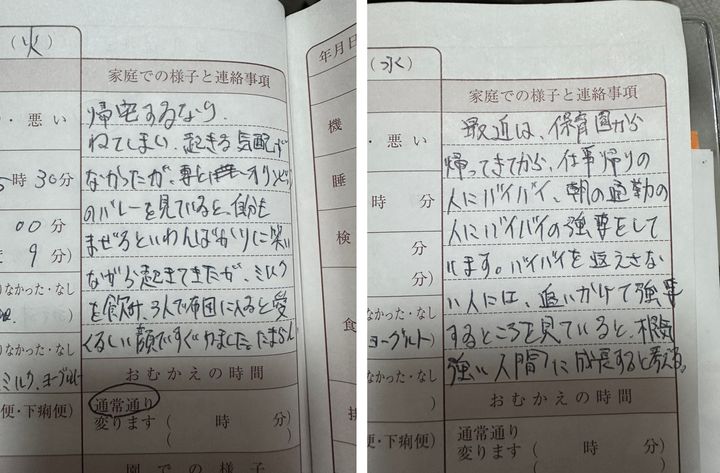 (火)
家庭での様子と連絡事項
・悪い
時30分
00分
9分)
なかった・なし
ミルク、ヨーグルト
便・下痢便)
帰宅するなり、
ねてしまい、起きる気配が
なかったが、妻とオリンピック
のバレーを見ていると、自分も
まぜろといわんばかりに笑い
ながら起きてきたが、ミルク
を飲み、3人で布団に入ると愛
くるしい顔ですぐねました。たまらん
おむかえの時間
通常通り
変ります(時 分)
園での様子
年月日
機
睡
検
食
排
(水)
家庭での様子と連絡事項
・悪い
時 分
分
分)
なかった・なし
ヨーグルト)
なかった・なし
)
便・下痢便)
最近は、保育園から
帰ってきてから、仕事帰りの
人にバイバイ、朝の通勤の
人にバイバイの強要をして
います。バイバイを返えさな
い人には、追いかけて強要
するところを見ていると、根気
強い人間に成長すると考える。
おむかえの時間
通常通り
変ります(時 分)